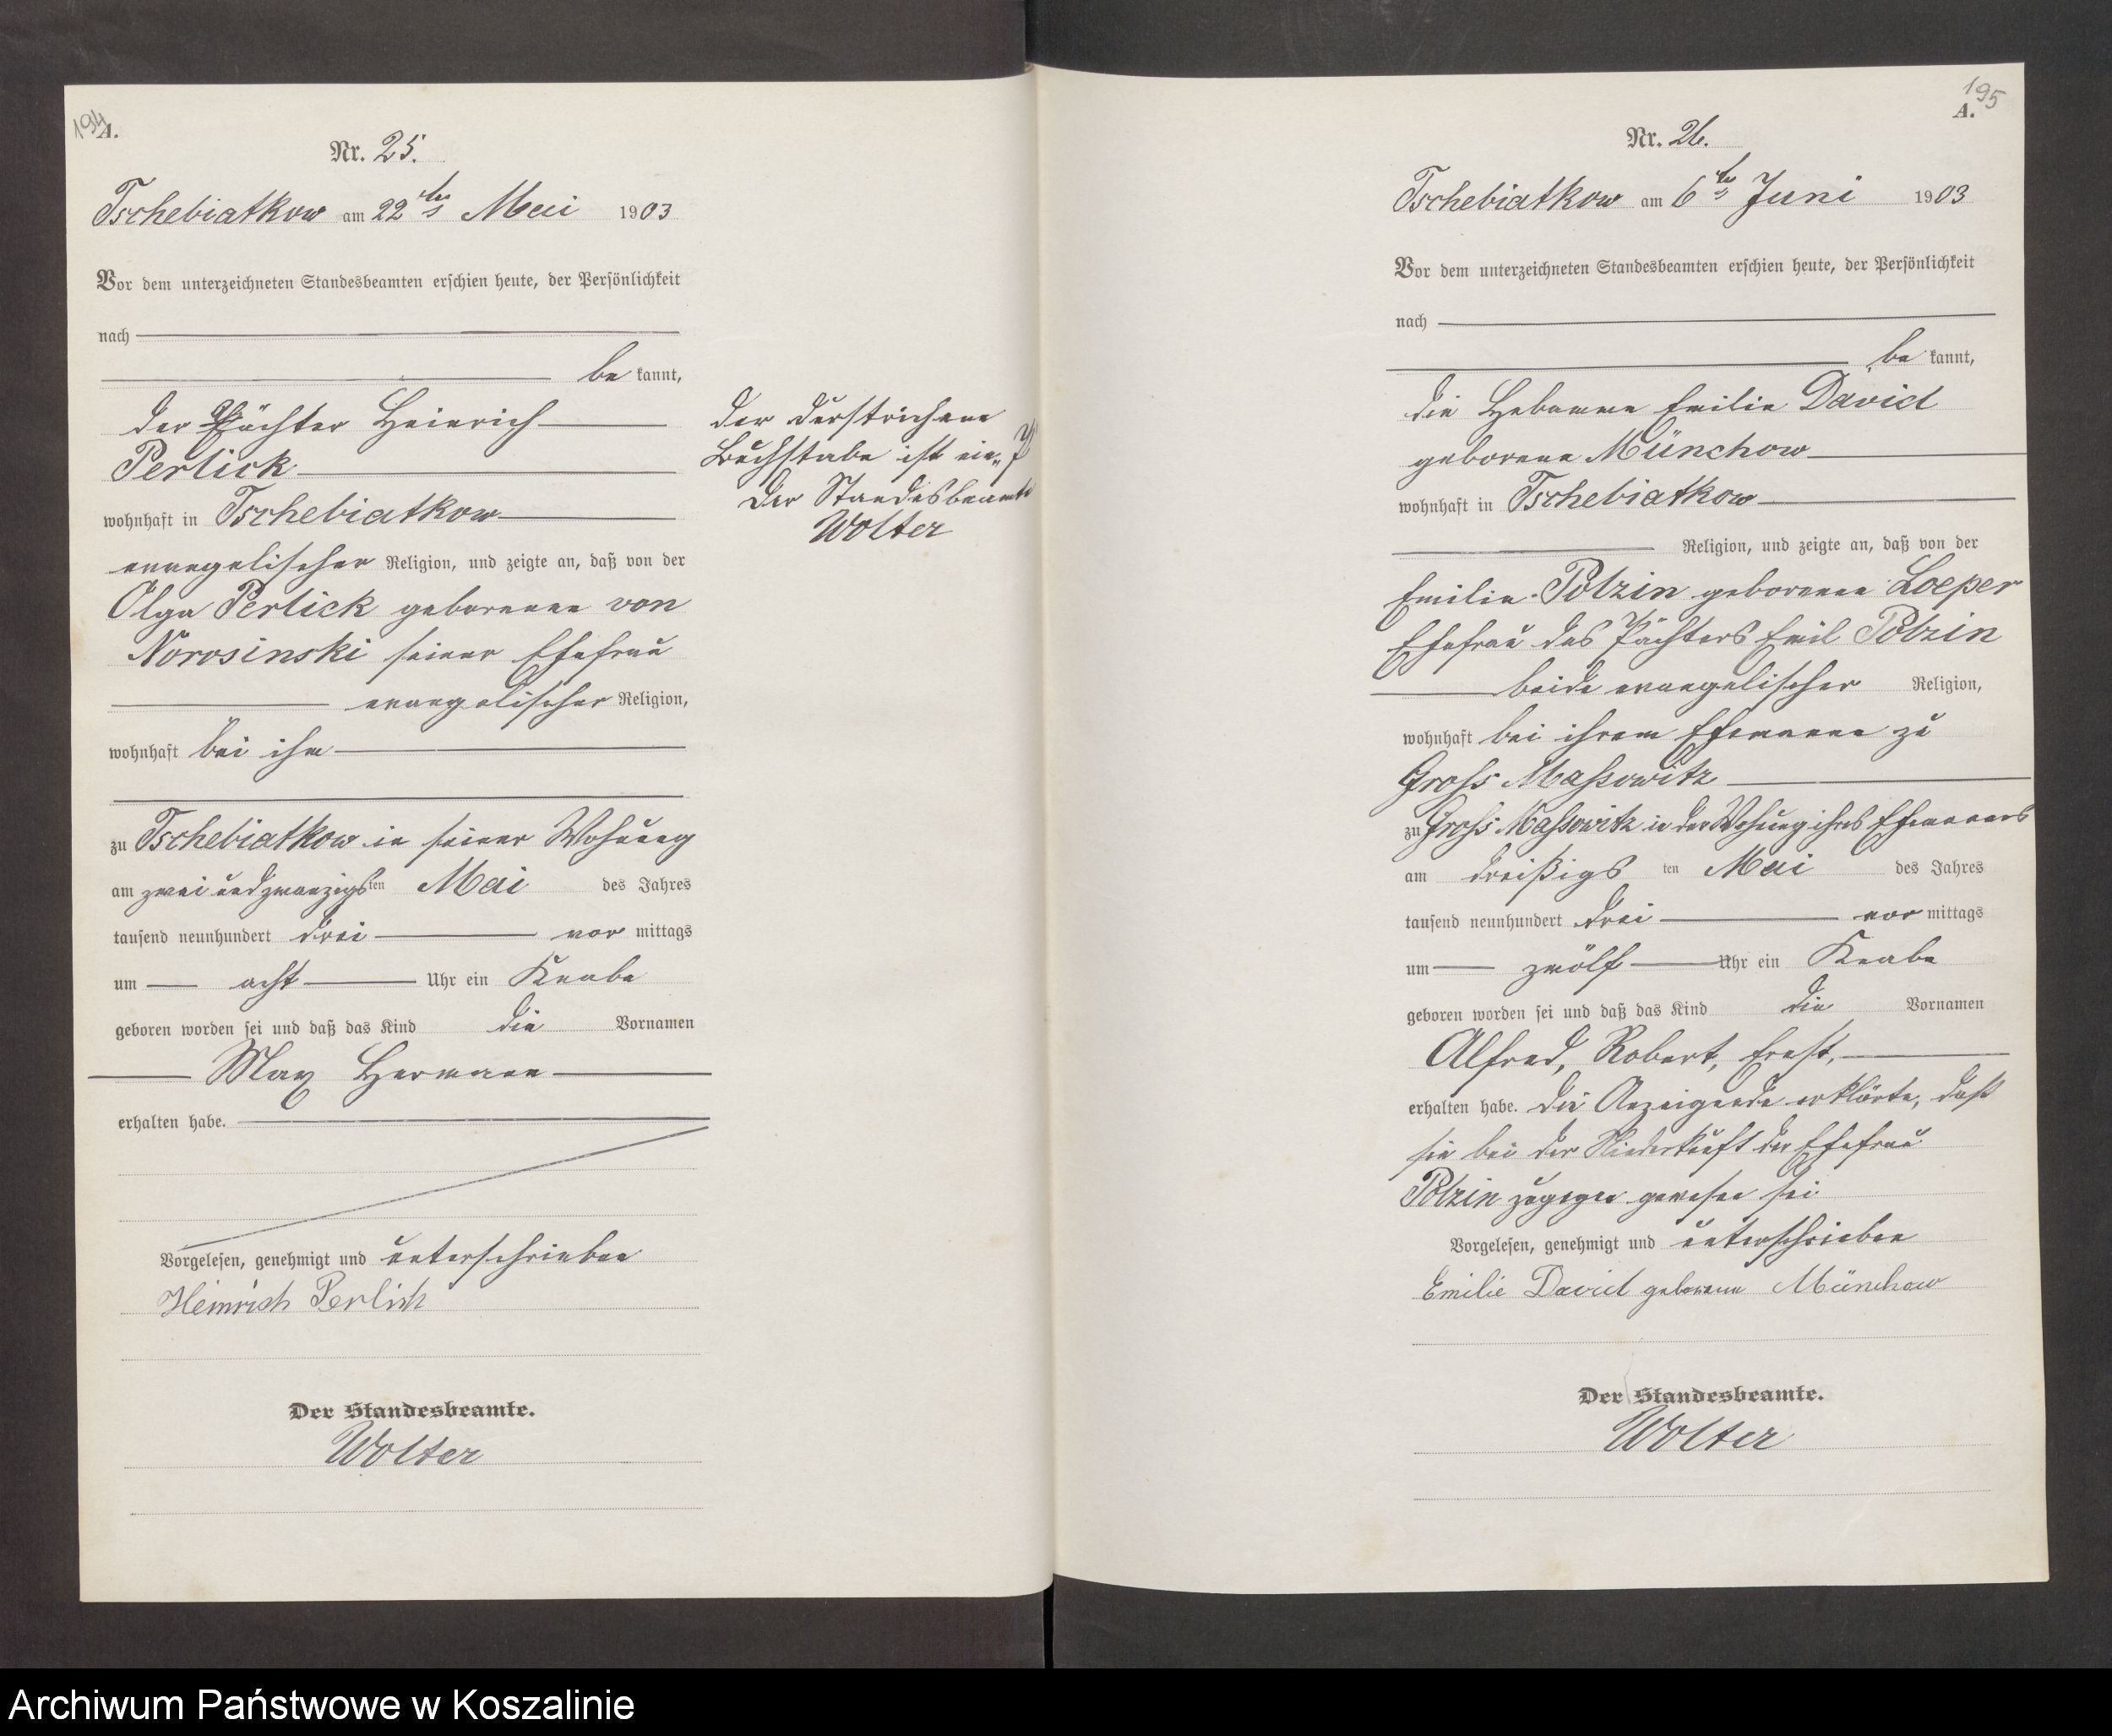 194
A.
Nr. 25.
Tschebiatkow am 22ten Mai 1903
Vor dem unterzeichneten Standesbeamten erschien heute, der Persönlichkeit
nach
be kannt,
der Pächter Heinrich
Perlick
wohnhaft in Tschebiatkow
evangelischer Religion, und zeigte an, daß von der
Olga Perlick geborenen von
Norosinski seiner Ehefrau
evangelischer Religion,
wohnhaft bei ihm
zu Tschebiatkow in seiner Wohnung
am zwei und zwanzigsten Mai des Jahres
tausend neunhundert drei vor mittags
um acht Uhr ein Knabe
geboren worden sei und daß das Kind die Vornamen
Max Hermann
erhalten habe.
Vorgelesen, genehmigt und unterschrieben
Heinrich Perlick
Der Standesbeamte.
Wolter
der durstrichene
Buchstabe ist ein „P
Der Standesbeamte
Wolter
195
A.
Nr. 26.
Tschebiatkow am 6ten Juni 1903
Vor dem unterzeichneten Standesbeamten erschien heute, der Persönlichkeit
nach
be kannt,
die Hebamme Emilie David
geborene Münchow
wohnhaft in Tschebiatkow
Religion, und zeigte an, daß von der
Emilie Polzin geborenen Loeper
Ehefrau des Pächters Emil Polzin
beide evangelischer Religion,
wohnhaft bei ihrem Ehemanne zu
Gross Massowitz
zu Gross Massowitz in der Wohnung ihres Ehemannes
am dreißigsten Mai des Jahres
tausend neunhundert drei vor mittags
um zwölf Uhr ein Knabe
geboren worden sei und daß das Kind die Vornamen
Alfred, Robert, Ernst,
erhalten habe. Die Anzeigende erklärte, daß
sie bei der Niederkunft der Ehefrau
Polzin zugegen gewesen sei
Vorgelesen, genehmigt und unterschrieben
Emilie David geborene Münchow
Der Standesbeamte.
Wolter
Archiwum Państwowe w Koszalinie